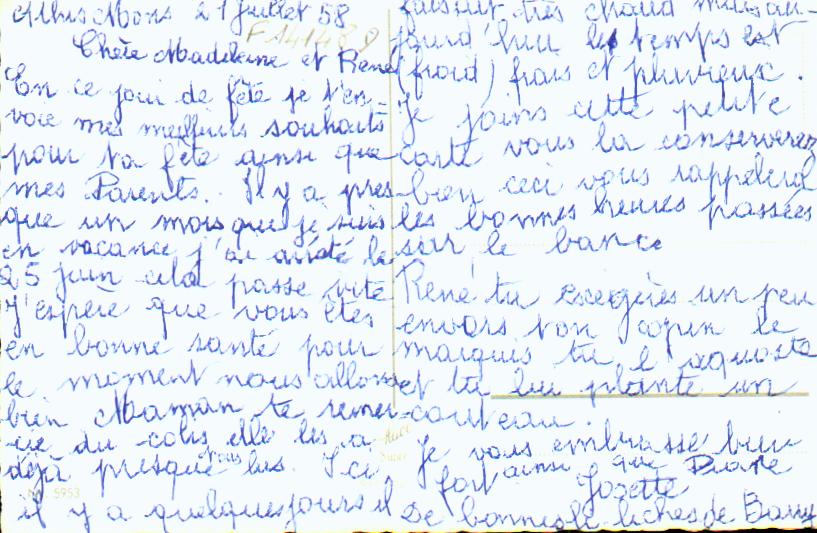 Athis Mons 21 Juillet 58
Chère Madeleine et René
En ce jour de fête je t'en-
voie mes meilleurs souhaits
pour ta fête ainsi que
mes Parents. Il y a pres-
que un mois que je suis
en vacance j'ai arrêté le
25 juin cela passe vite
J'espère que vous êtes
en bonne santé pour
le moment nous allons
bien Maman te remer-
cie du colis elle les a
déjà presque tous lus. Ici
il y a quelques jours il
faisait très chaud mais au-
jourd'hui le temps est
(froid) frais et pluvieux.
Je joins cette petite
carte vous la conserverez
bien ceci vous rappelera
les bonnes heures passées
sur le banc.
René tu un peu
envers ton copin le
marquis tu
et tu lui plante un
couteau.
Je vous embrasse bien
fort ainsi que Diane
Josette
De bonnes liches de
5953